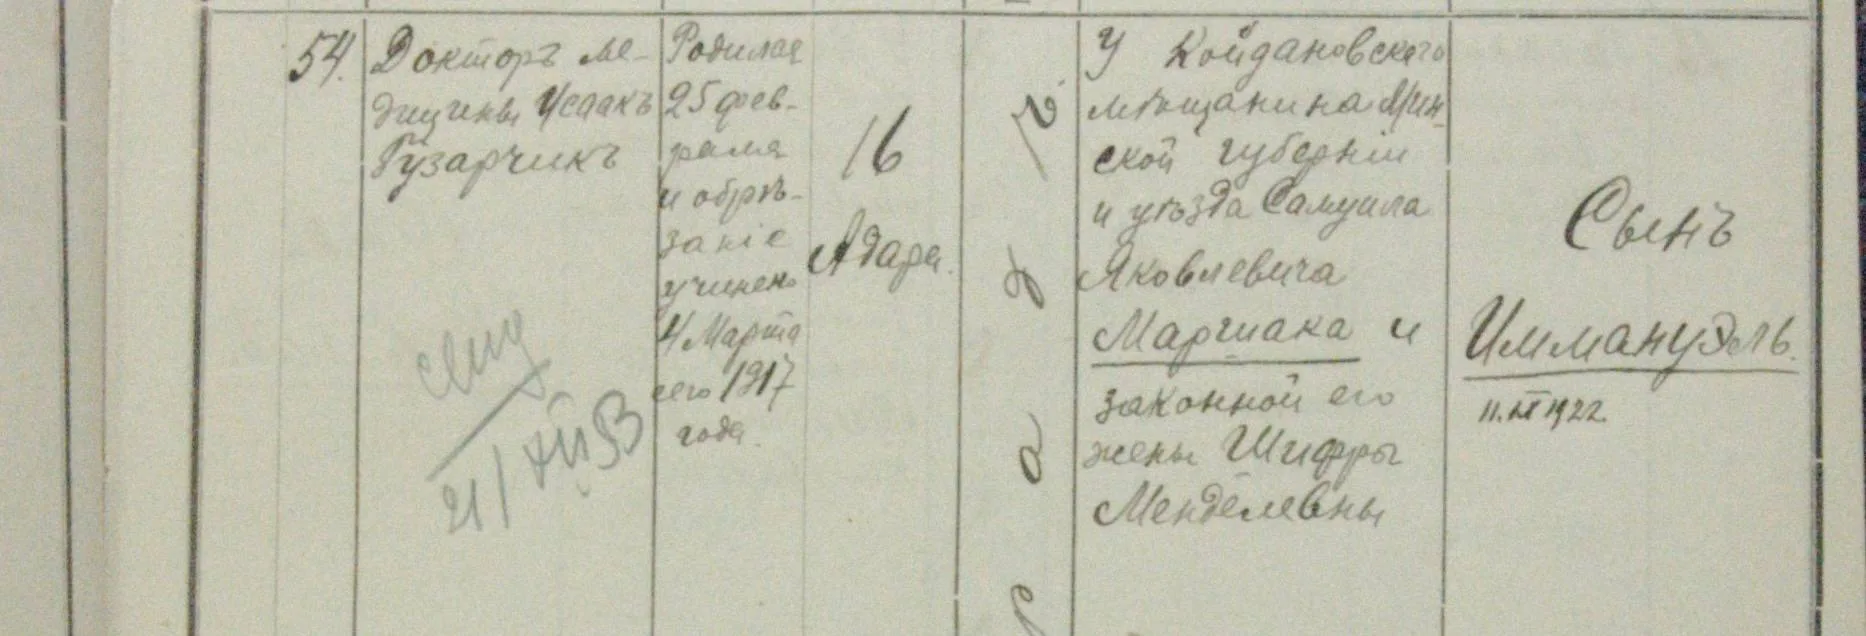 54.
Докторъ ме-
дицины Исаакъ
Гузарчикъ
Родился
25 фев-
раля
и обрѣ-
заніе
учинено
4 Марта
сего 1917
года.
16
Адара.
У Койдановскаго
мѣщанина Мин-
ской губерніи
и уѣзда Самуила
Яковлевича
Маршака и
законной его
жены Шифры
Менделевны
Сынъ
Иммануэль.
11.III 1922.
21/XII 53